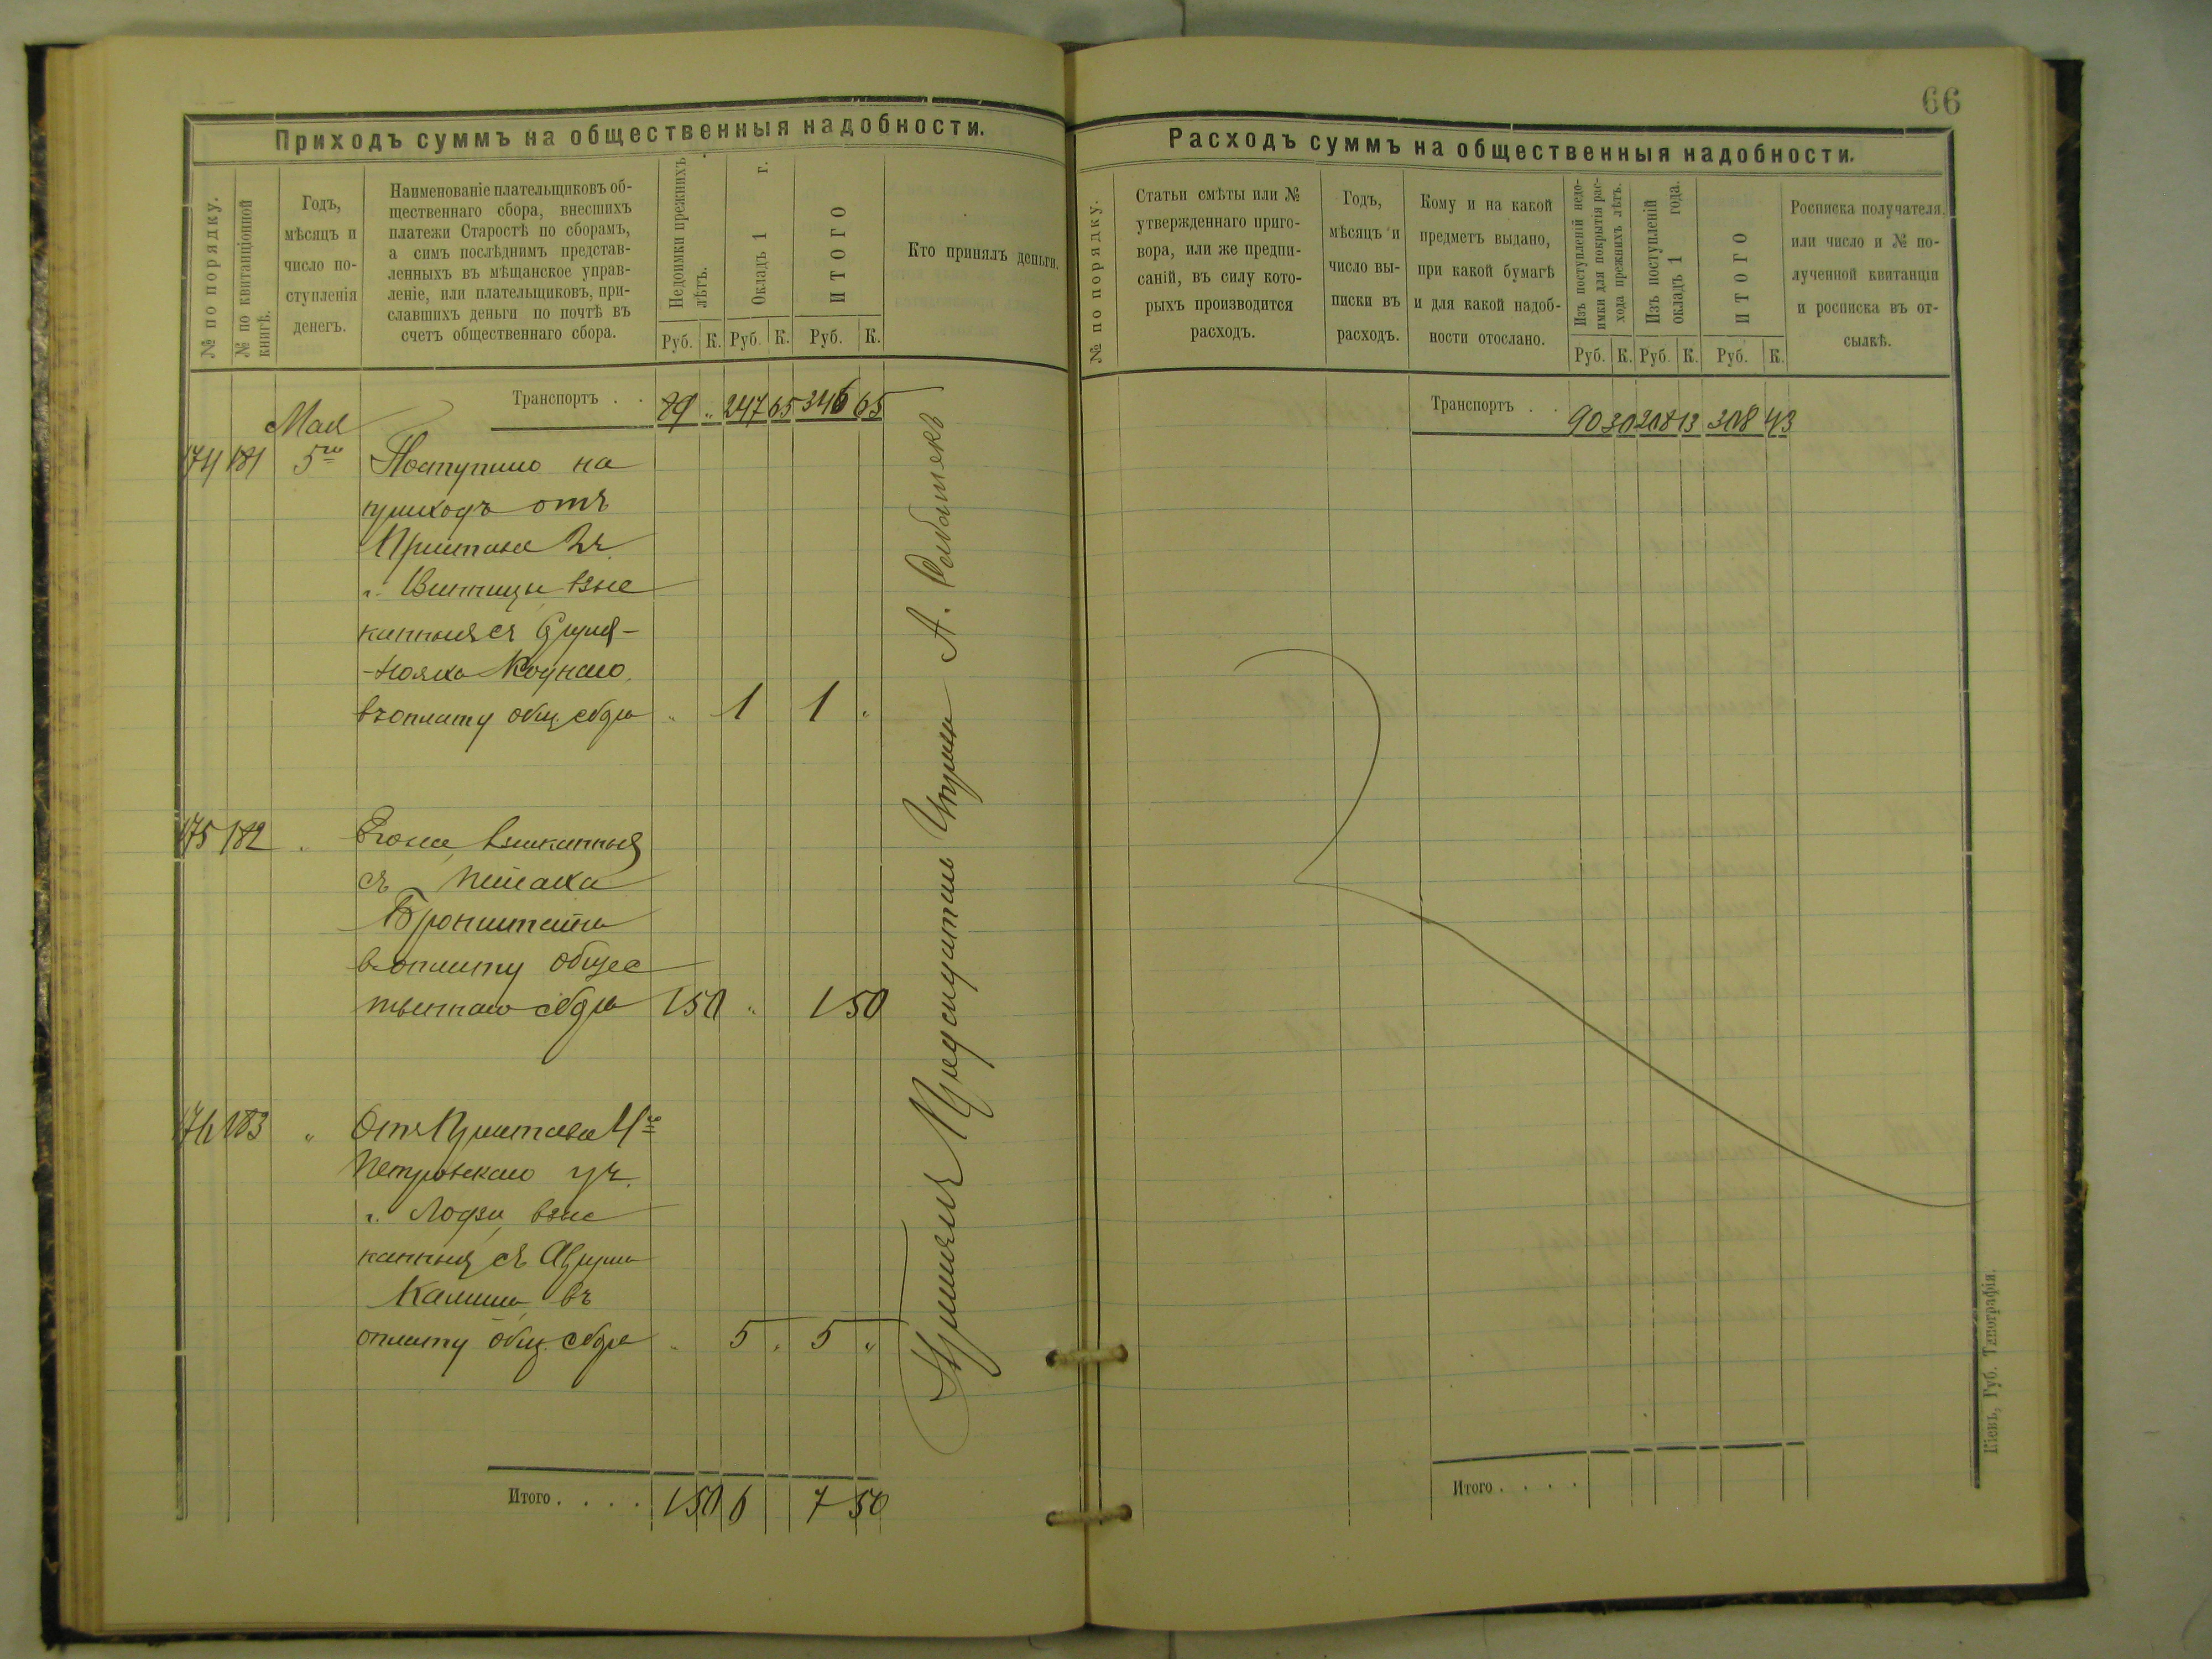 66
Приходъ суммъ на общественныя надобности.
№ по порядку.
№ по квитанціонной
книгѣ.
Годъ,
мѣсяцъ и
число по-
ступленія
денегъ.
Наименованіе плательщиковъ об-
щественнаго сбора, внесшихъ
платежи Старостѣ по сборамъ,
а симъ послѣднимъ представ-
ленныхъ въ мѣщанское управ-
леніе, или плательщиковъ, при-
славшихъ деньги по почтѣ въ
счетъ общественнаго сбора.
Недоимки прежнихъ
лѣтъ.
Окладъ 1 г.
ИТОГО
Кто принялъ деньги.
Руб. К. Руб. К. Руб. К.
Транспортъ . . 99 „ 247 65 346 65
Мая
174 181 5го Поступило на
приходъ отъ
Пристава 2 ч.
г. Винницы взыс
канныя съ
Коднаго
въ оплату общ. сбора „ 1 1 „
175 182 „ Его же взысканныя
съ Пейсаха
Бронштейна
въ оплату общес
твеннаго сбора 1 50 „ 1 50
176 183 „ Отъ Пристава 4го
Петровскаго уч.
г. Лодзи взыс
канныя съ
въ
оплату общ. сбора „ 5 „ 5 „
Итого . . . . 1 50 6 7 50
Принялъ Председатель Управы А.
Расходъ суммъ на общественныя надобности.
№ по порядку.
Статьи смѣты или №
утвержденнаго приго-
вора, или же предпи-
саній, въ силу кото-
рыхъ производится
расходъ.
Годъ,
мѣсяцъ и
число вы-
писки въ
расходъ.
Кому и на какой
предметъ выдано,
при какой бумагѣ
и для какой надоб-
ности отослано.
Изъ поступленій недо-
имки для покрытія рас-
хода прежнихъ лѣтъ.
Изъ поступленій
окладъ 1 года.
ИТОГО
Росписка получателя
или число и № по-
лученной квитанціи
и росписка въ от-
сылкѣ.
Руб. К. Руб. К. Руб. К.
Транспортъ . . 90 30 218 13 308 43
Итого . . . .
Кіевъ, Губ. Типографія.